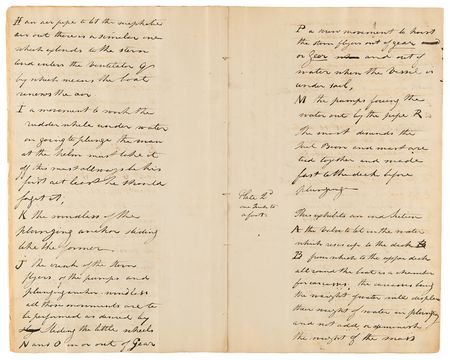 H an air pipe to let the mephitic
air out there is a similar one
which extends to the stern
and enters the Ventilator G
by which means the boat
renews the air
I a movement to work the
rudder while under water
on going to plunge the man
at the helm must take it
off this must allways be his
first act least he should
forget it,
K the windlass of the
plunging anchor sliding
like the former.
J the crank of the stern
flyers, of the pumps and
plunging anchor windlass
all these movements are to
be performed as desired by
sliding the little wheels
N and O in or out of Gear
P a screw movement to hoist
the stern flyers out of gear
or Gear and out of
water when the Vessel is
under sail,
M the pumps forcing the
water out by the pipe R.
The mast descends the
Sail Boom and mast are
tied together and made
fast to the deck before
plunging
Plate 2d
one Inch to
a foot.
This exhibits an end section
A the valve to let in the water
which rises up to the deck B
B from which to the upper deck
all round the boat is a chamber
for carcasses, the carcasses being
the weight of water will displace
their weight of water in plunging
and not add or diminish
the weight of the mass